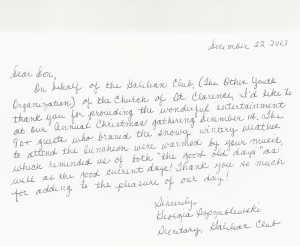 December 22, 2013
Dear Don,
On behalf of the Galilean Club, (The Other Youth
Organization) of the Church of St. Clarence, I'd like to
thank you for providing the wonderful entertainment
at our Annual Christmas gathering December 14. The
90+ guests who braved the snowy wintery weather
to attend the luncheon were warmed by your music,
which reminded us of both "the good old days" as
well as the good current days! Thank you so much
for adding to the pleasure of our day!
Sincerely,
Georgia
Secretary, Galilean Club